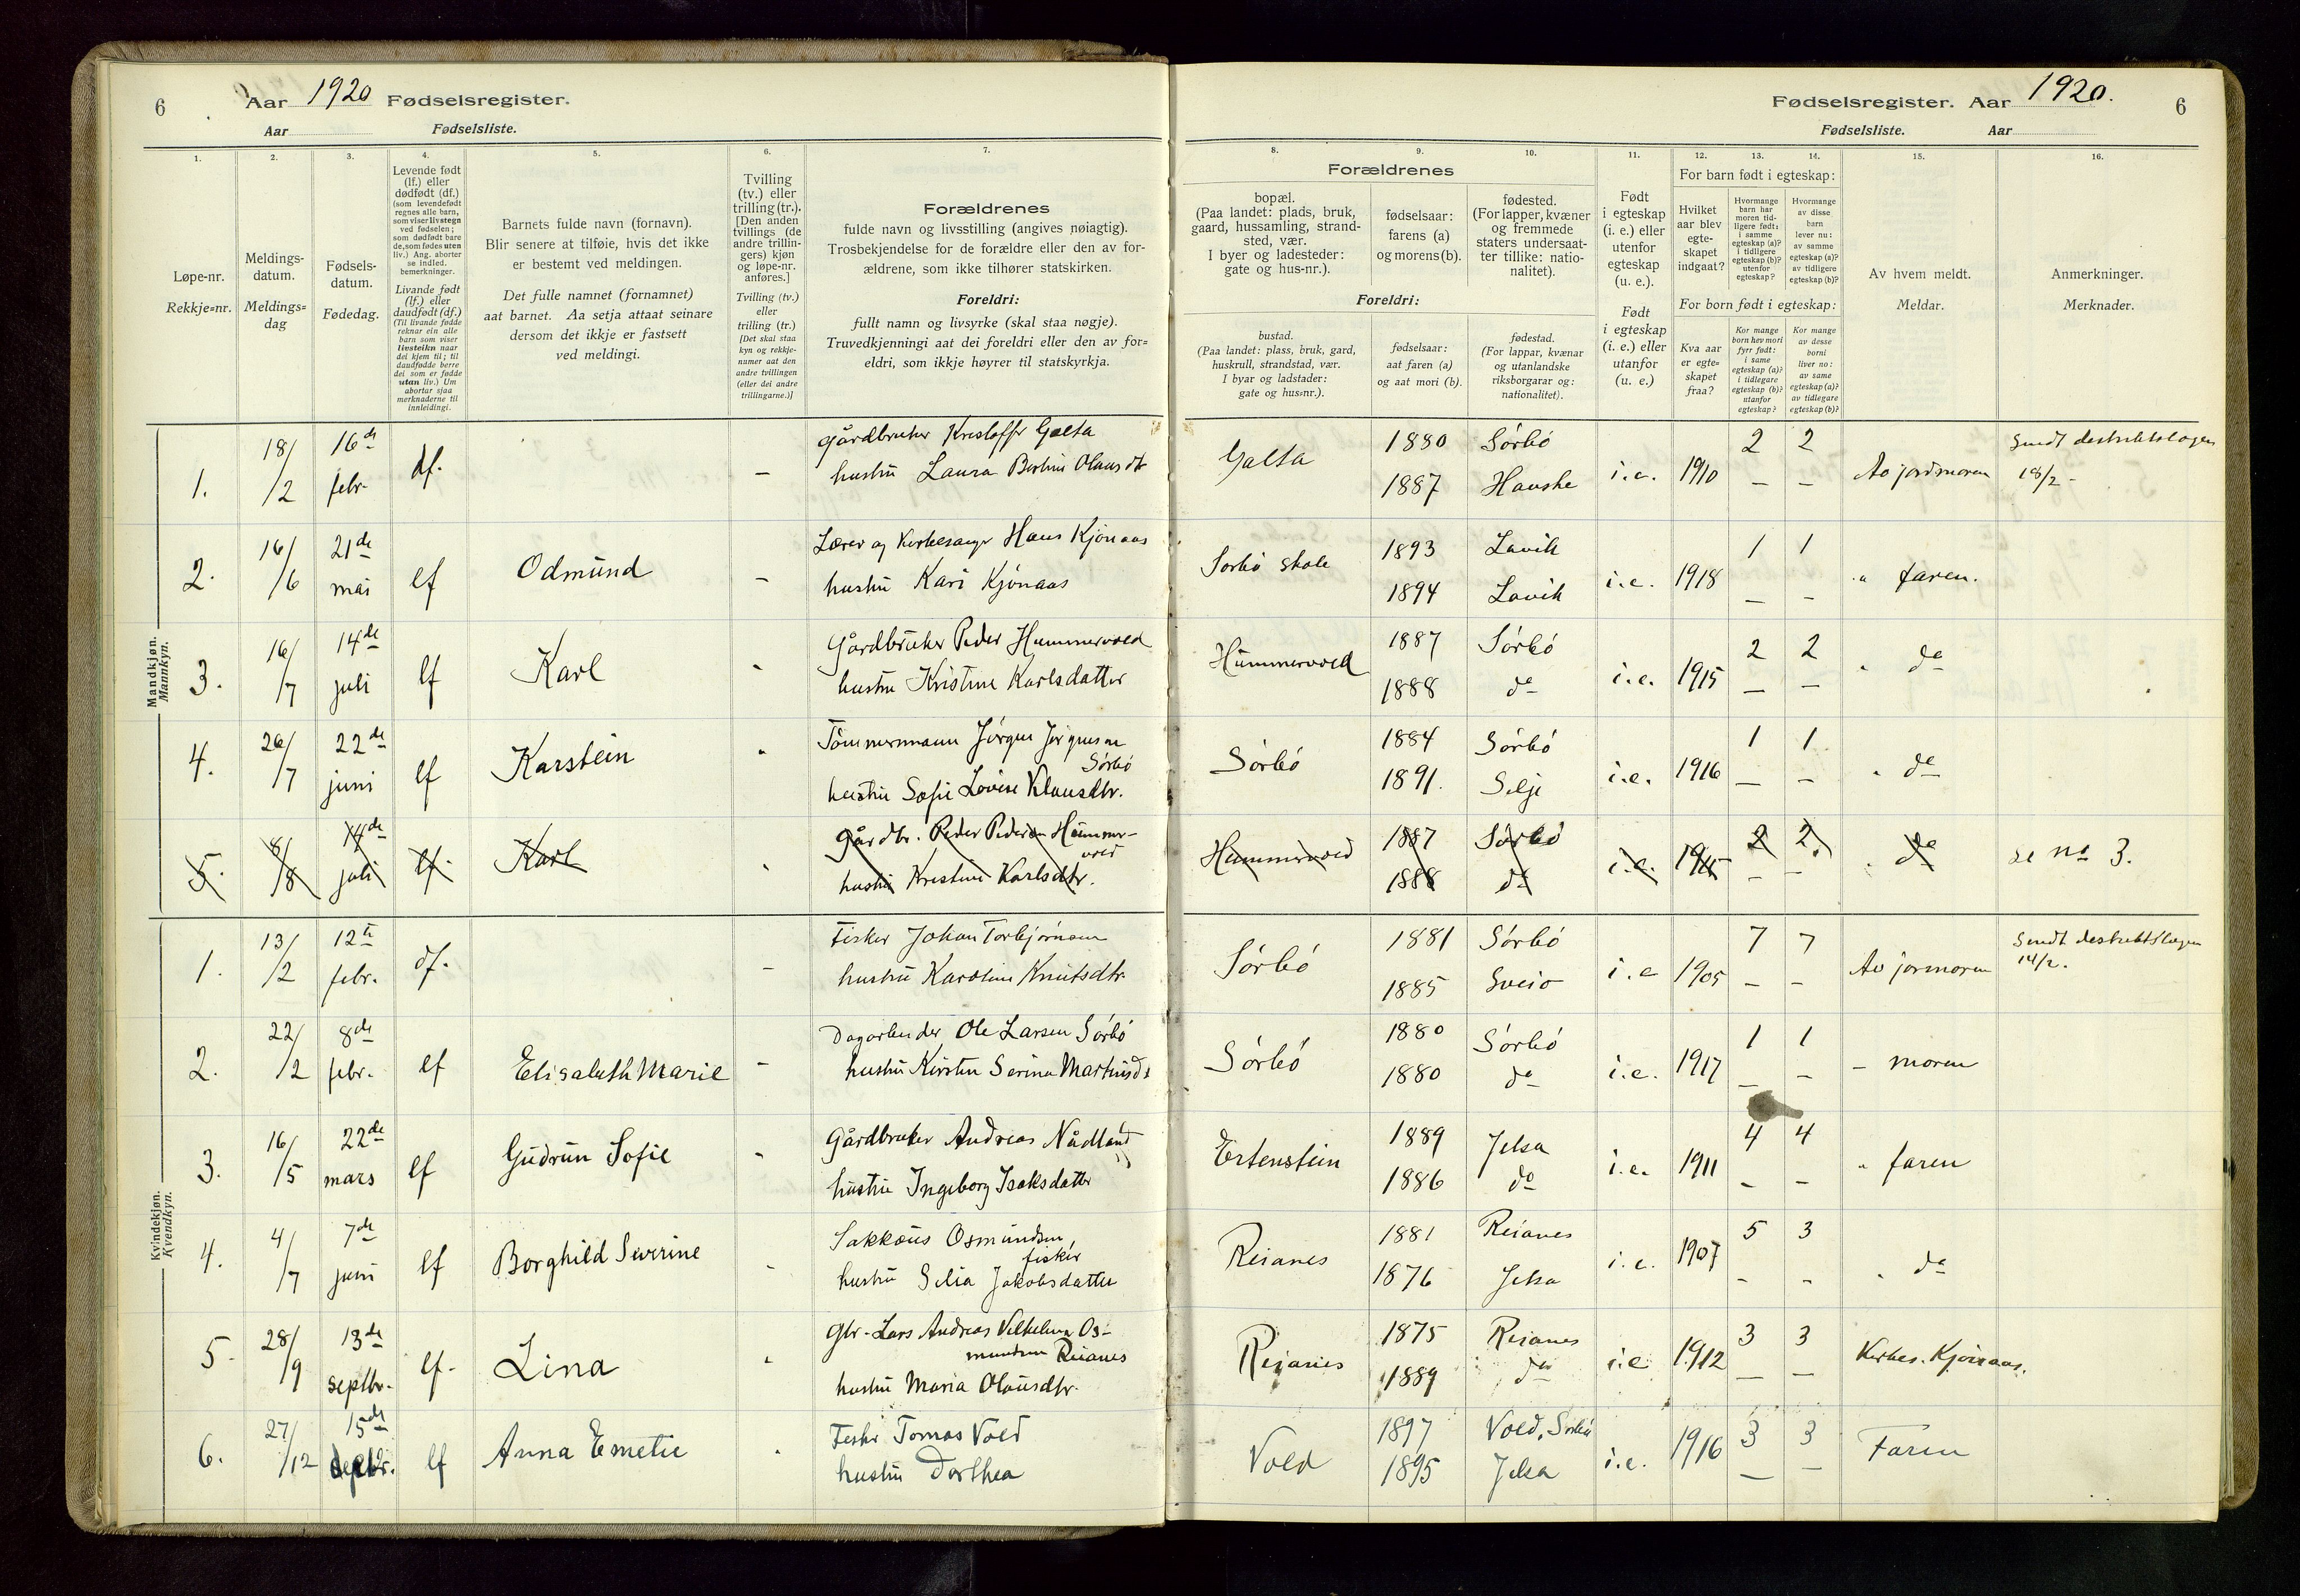 6 Aar 1920 Fødselsregister.
Aar Fødselsliste.
Fødselsregister. Aar 1920. 6
Fødselsliste. Aar
1. 2. 3. 4. 5. 6. 7. 8. 9. 10. 11. 12. 13. 14. 15. 16.
Løpe-nr.
Rekkje=nr.
Meldings-
datum.
Meldings=
dag
Fødsels-
datum.
Fødedag.
Levende født
(lf.) eller
dødfødt (df.)
(som levendefødt
regnes alle barn,
som viser livstegn
ved fødselen;
som dødfødt bare
de, som fødes uten
liv.) Ang. aborter
se indled.
bemerkninger.
Livande født
(lf.) eller
daudfødt (df.)
(Til livande fødde
reknar ein alle
barn som viser
livsteikn naar
dei kjem til; til
daudfødde berre
dei som er fødde
utan liv.) Um
abortar sjaa
merknaderne til
innleidingi.
Barnets fulde navn (fornavn).
Blir senere at tilføie, hvis det ikke
er bestemt ved meldingen.
Det fulle namnet (fornamnet)
aat barnet. Aa setja attaat seinare
dersom det ikkje er fastsett
ved meldingi.
Tvilling
(tv.) eller
trilling (tr.).
[Den anden
tvillings (de
andre trillin-
gers) kjøn
og løpe-nr.
anføres.]
Tvilling (tv.)
eller
trilling (tr.)
[Det skal staa
kyn og rekkje-
numer aat den
andre tvillingen
(eller dei andre
trillingarne.)]
Forældrenes
fulde navn og livsstilling (angives nøiagtig).
Trosbekjendelse for de forældre eller den av for-
ældrene, som ikke tilhører statskirken.
Foreldri:
fullt namn og livsyrke (skal staa nøgje).
Truvedkjenningi aat dei foreldri eller den av for=
eldri, som ikkje høyrer til statskyrkja.
Forældrenes
bopæl.
(Paa landet: plads, bruk,
gaard, hussamling, strand-
sted, vær.
I byer og ladesteder:
gate og hus-nr.).
fødselsaar:
farens (a)
og morens (b).
fødested.
(For lapper, kvæner
og fremmede
staters undersaat-
ter tillike: natio-
nalitet).
Foreldri:
bustad.
(Paa landet: plass, bruk, gard,
huskrull, strandstad, vær.
I byar og ladstader:
gate og hus=nr.).
fødselsaar:
aat faren (a)
og aat mori (b).
fødestad.
(For lappar, kvænar
og utanlandske
riksborgarar og:
nationalitet).
Født
i egteskap
(i. e.) eller
utenfor
egteskap
(u. e.).
Født
i egteskap
(i. e.) eller
utanfor
(u. e.)
For barn født i egteskap:
Hvilket
aar blev
egte-
skapet
indgaat?
Hvormange
barn har
moren tid-
ligere født:
i samme
egteskap (a)?
i tidligere
egteskap (b)?
utenfor
egteskap?
Hvormange
av disse
barn
lever nu:
av samme
egteskap (a)?
av tidligere
egteskap (b)?
For born født i egteskap:
Kva aar
er egte-
skapet
fraa?
Kor mange
born hev mori
fyrr født:
i same
egteskap (a)?
i tidlegare
egteskap (b)?
utanfor
egteskap?
Kor mange
av desse
borni
liver no:
av same
egteskap (a)?
av tidlegare
egteskap (b)?
Av hvem meldt.
Meldar.
Anmerkninger.
Merknader.
Mandkjøn.
Mannkyn.
1. 18/2 16de febr. df. – Gårdbruker Kristoffer Galta
hustru Laura Bertine Olausdtr
Galta 1880 Sørbø
1887 Hauske i.e. 1910 2 2 – – Av jordmoren Sendt destriktslegen
18/2 -
2. 16/6 21de mai lf Odmund – Lærer og Kirkesanger Hans Kjönaas
hustru Kari Kjönaas
Sørbø skole 1893 Lavik
1894 Lavik i.e. 1918 1 1 – – " faren.
3. 16/7 14de juli lf Karl - Gårdbruker Peder Hummervold
hustru Kristine Karlsdatter
Hummervold 1887 Sørbø
1888 do i.e. 1915 2 2 – – " do
4. 26/7 22de juni lf Karstein " Tömmermann Jörgen Jörgensen
Sørbø
hustru Sofie Lovise Klausdtr.
Sørbø 1884 Sørbø
1891. Selje i.e. 1916 1 1 – – " do
5. 8/8 14de juli lf. Karl " Gårdbr. Peder Pedersen Hummer-
vold
hustru Kristine Karlsdtr.
Hummervold 1887 Sørbø
1888 do i.e. 1915 2 2. – – " do se no 3.
Kvindekjøn.
Kvendkyn.
1. 13/2 12te febr. df. – Fisker Johan Torbjørnsen
hustru Karoline Knutsdtr.
Sørbø 1881 Sørbø
1885 Sveio i.e 1905 7 7 – – Av jormoren Sendt destriktslegen
14/2.
2. 22/2 8de febr. lf Elisabeth Marie – Dagarbeider Ole Larsen Sørbø
hustru Kirsten Serina Martinsd.
Sørbø 1880 Sørbø
1880 do i.e. 1917 1 1 – – – moren
3. 16/5 22de mars lf Gudrun Sofie - Gårdbruker Andreas Nådland
hustru Ingeborg Isaksdatter
Ertenstein 1889 Jelsa
1886 do i.e. 1911 4 4 – – " faren
4. 4/7 7de juni lf Borghild Severine - Sakkæus Osmundsen,
fisker
hustru Selia Jakobsdatter
Reianes 1881 Reianes
1876 Jelsa i.e. 1907 5 3 – – " do
5. 28/9 13de septbr. lf. Lina " Gbr. Lars Andreas Vilhelm Os-
mundsen Reianes
hustru Maria Olausdtr.
Reianes 1875 Reianes
1889 do i.e 1912 3 3 – – Kirkes. Kjönaas.
6. 27/12 15de lf Anna Emelie " Fisker Tomas Vold
hustru Dorthea
Vold 1897 Vold, Sørbø
1895 Jelsa i.e. 1916 3 3 – – Faren